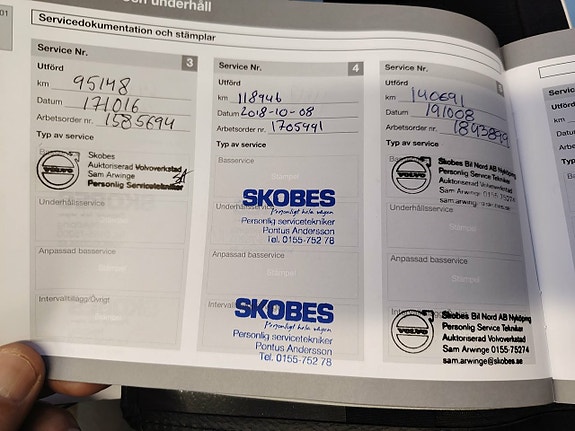 01
en underhåll
Servicedokumentation och stämplar
Service Nr. 3
Utförd
km 95148
Datum 171016
Arbetsorder nr. 1585694
Typ av service
VOLVO
Skobes
Auktoriserad Volvoverkstad
Sam Arwinge
Personlig Servicetekniker
Underhållsservice
Stämpel
Anpassad basservice
Stämpel
Intervalltillägg/Övrigt
Service Nr. 4
Utförd
km 118946
Datum 2018-10-08
Arbetsorder nr. 1705991
Typ av service
Basservice
Stämpel
SKOBES
Personligt hela vägen
Personlig servicetekniker
Pontus Andersson
Tel. 0155-752 78
Anpassad basservice
Stämpel
SKOBES
Personligt hela vägen
Personlig servicetekniker
Pontus Andersson
Tel. 0155-752 78
Service Nr.
Utförd
km 140691
Datum 191008
Arbetsorder nr. 1843899
Typ av service
VOLVO
Skobes Bil Nord AB Nyköping
Personlig Service Tekniker
Auktoriserad Volvoverkstad
Sam Arwinge 0155-75274
sam.arwinge@skobes.se
Underhållsservice
Stämpel
Anpassad basservice
Stämpel
VOLVO
Skobes Bil Nord AB Nyköping
Personlig Service Tekniker
Auktoriserad Volvoverkstad
Sam Arwinge 0155-75274
sam.arwinge@skobes.se